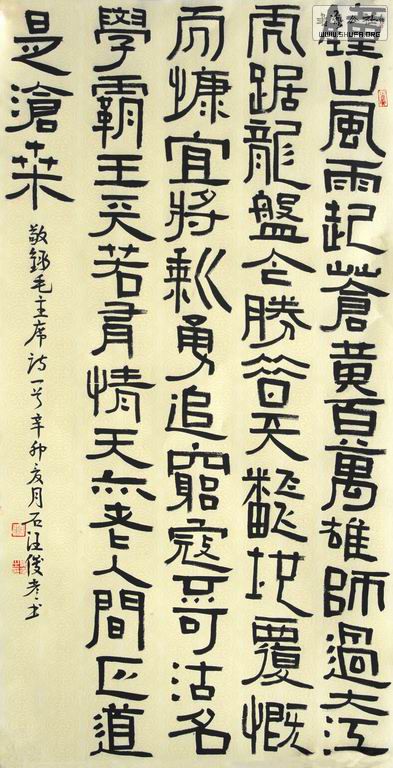 山風雨起蒼黃百萬雄師過大江
虎踞龍盤今勝昔天翻地覆慨
而慷宜將剩勇追窮寇不可沽名
學霸王天若有情天亦老人間正道
是滄桑
敬錄毛主席詩一首辛卯夏月石汪俊書
WWW.SHUFA.ORG